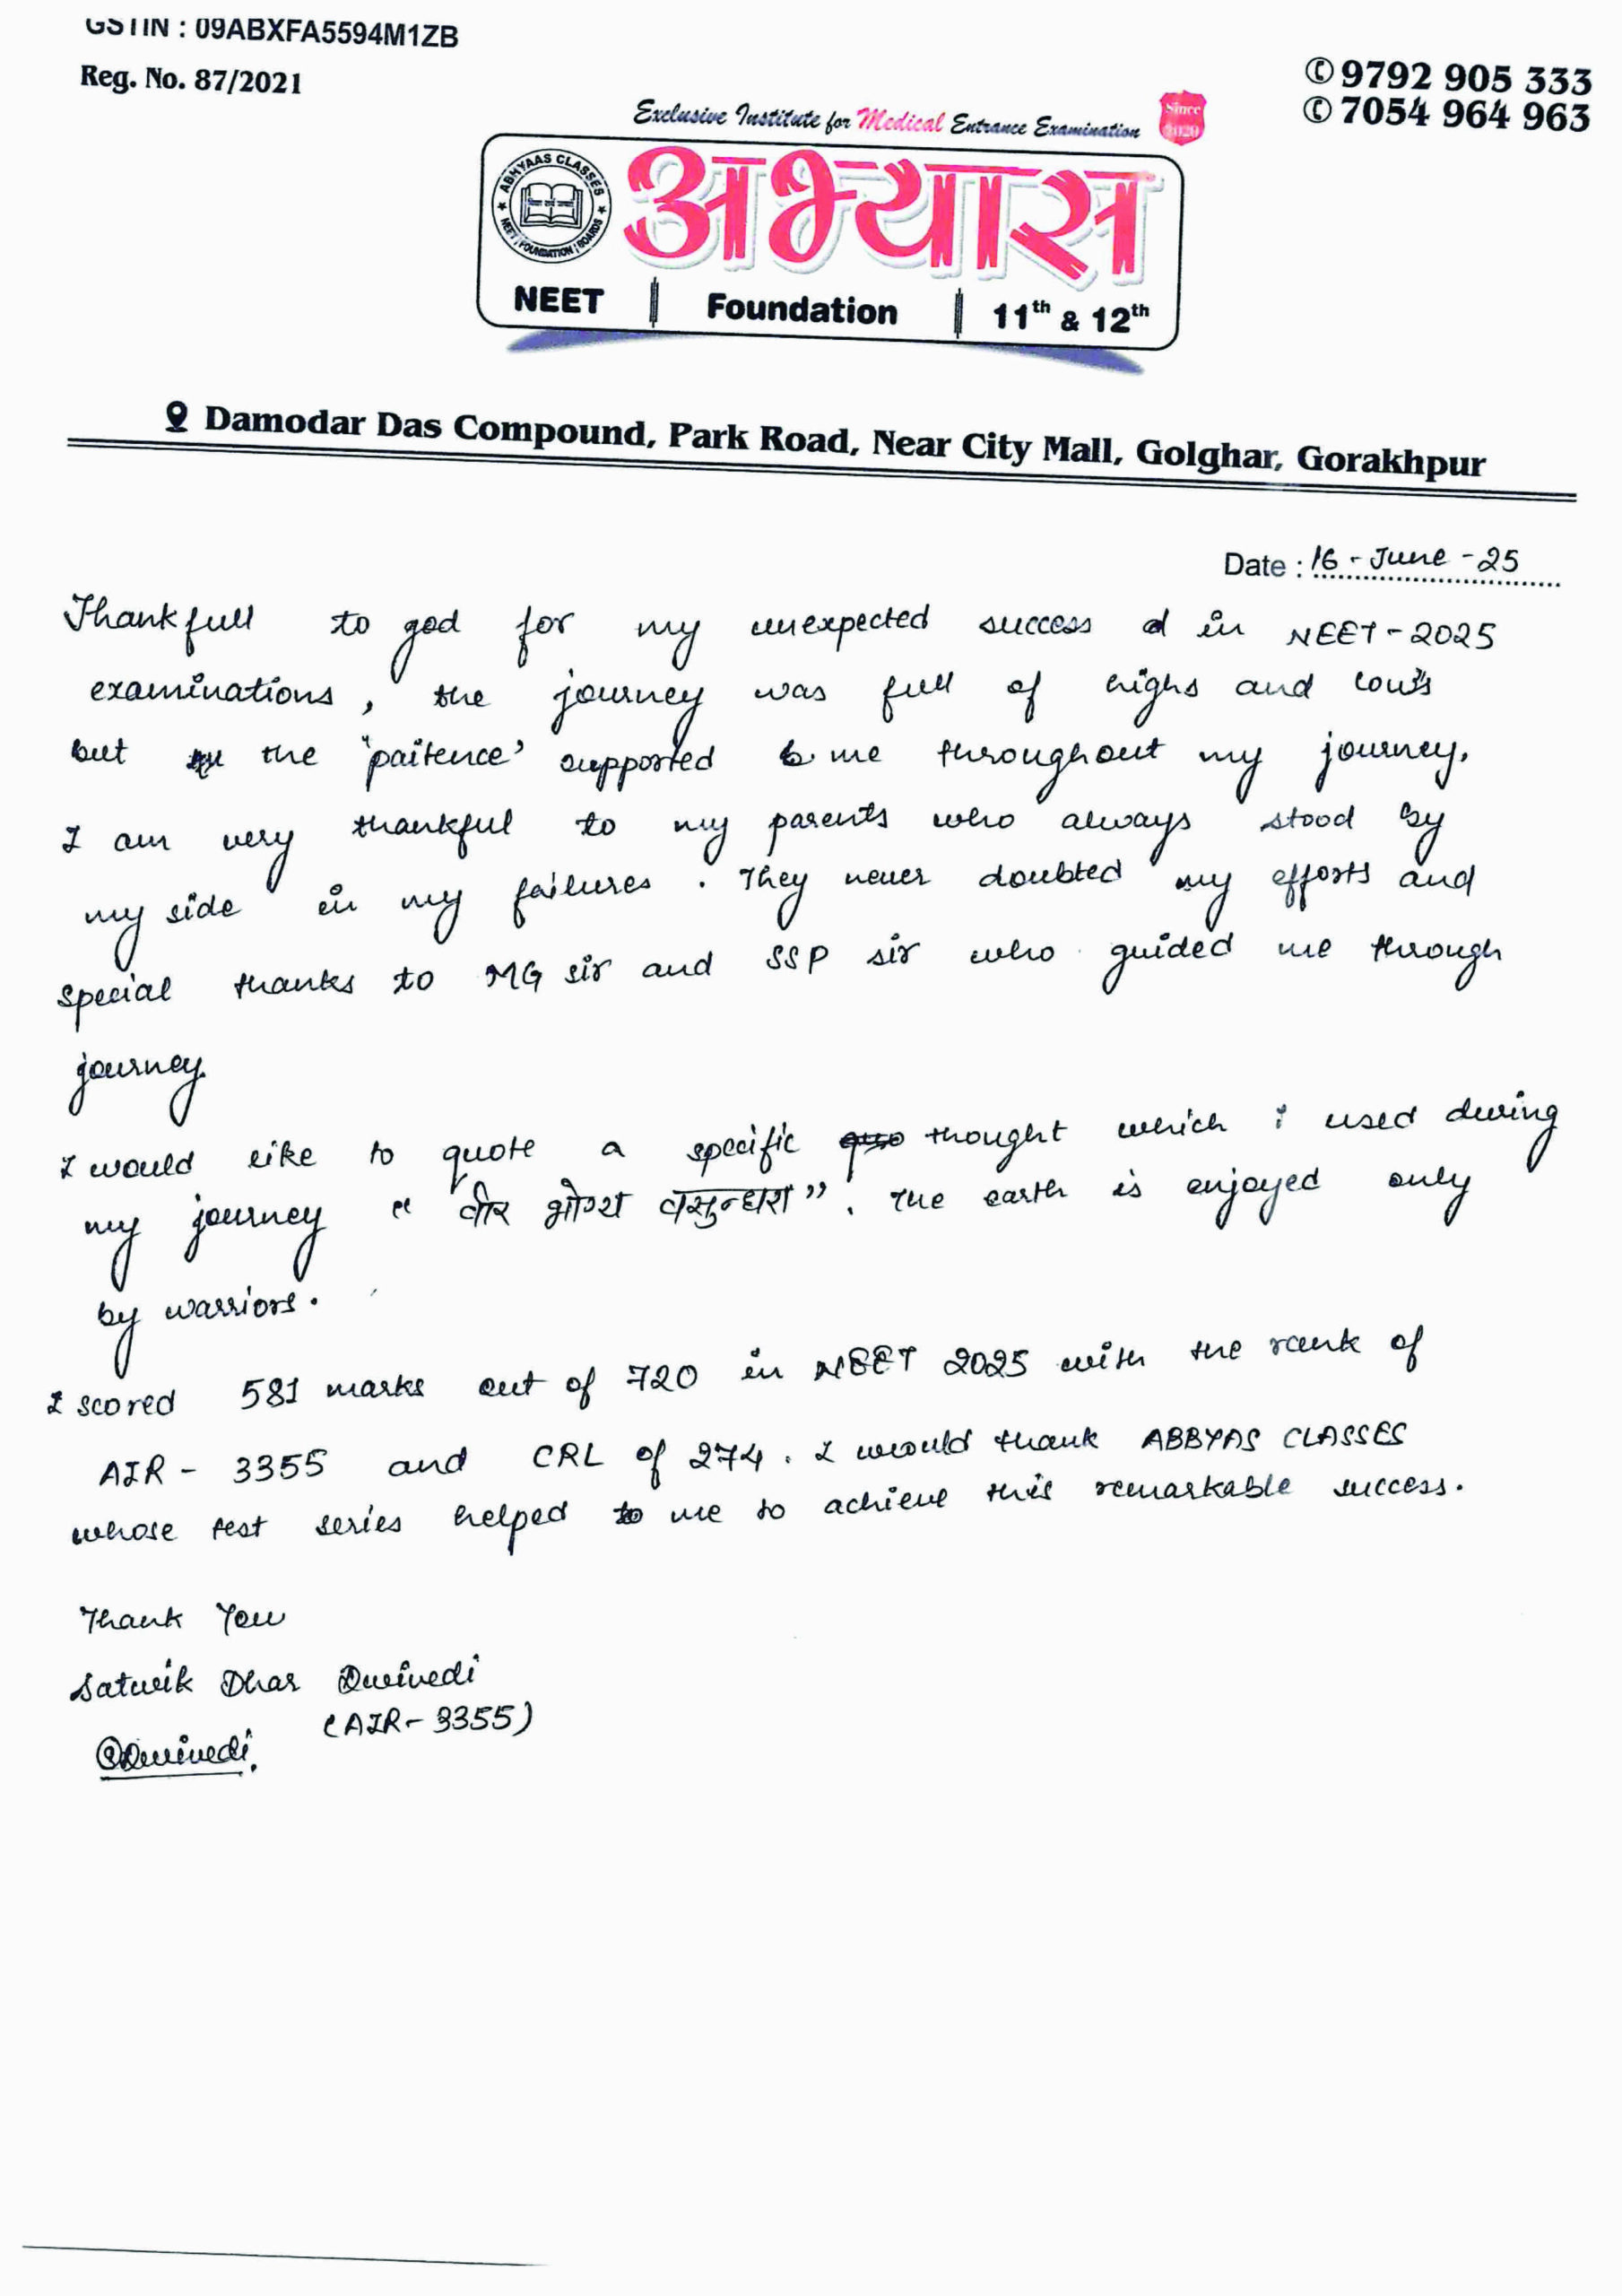 GSTIN : 09ABXFA5594M1ZB
Reg. No. 87/2021
✆ 9792 905 333
✆ 7054 964 963
Exclusive Institute for Medical Entrance Examination
Since 2020
ABHYAAS CLASSES
NEET | FOUNDATION | BOARDS
अभ्यास
NEET | Foundation | 11th & 12th
Damodar Das Compound, Park Road, Near City Mall, Golghar, Gorakhpur
Date : 16 - June - 25
Thankfull to god for my unexpected success in NEET - 2025
examinations, the journey was full of highs and lows
but the "paitence' supported me throughout my journey.
I am very thankful to my parents who always stood by
my side in my failures. They never doubted my efforts and
special thanks to MG sir and SSP sir who guided me through
journey.
I would like to quote a specific thought which i used during
my journey " वीर भोग्या वसुन्धरा ". The earth is enjoyed only
by warriors.
I scored 581 marks out of 720 in NEET 2025 with the rank of
AIR - 3355 and CRL of 274. I would thank ABBYAS CLASSES
whose test series helped to me to achieve this remarkable success.
Thank You
Satwik Dhar Dwivedi
(AIR - 3355)
Dwivedi.